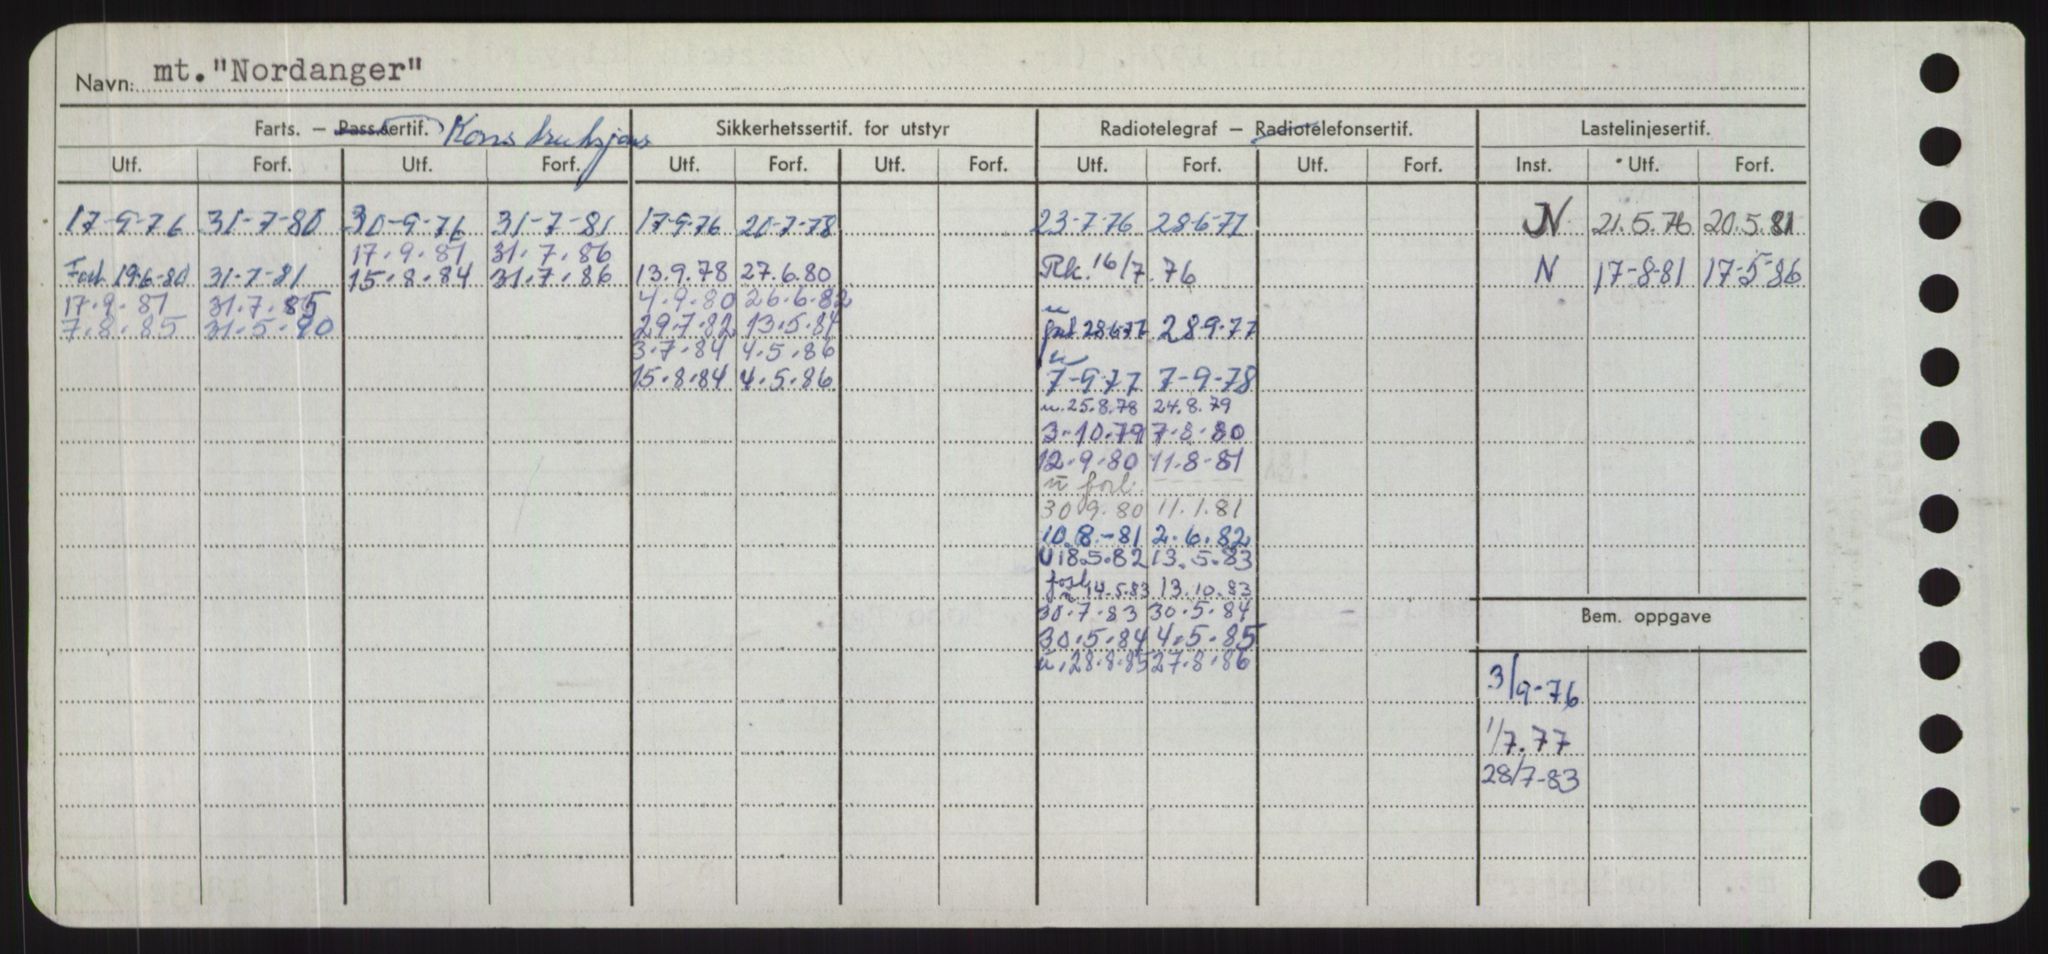 Navn: mt. "Nordanger"
Farts. – Passsertif. Konstruksjons Sikkerhetssertif. for utstyr Radiotelegraf – Radiotelefonsertif. Lastelinjesertif.
Utf. Forf. Utf. Forf. Utf. Forf. Utf. Forf. Utf. Forf. Utf. Forf. Inst. Utf. Forf.
17-9-76 31-7-80 30-9-76 31-7-81 17-9-76 20-7-78 23-7-76 28-6-77 N 21.5.76 20.5.81
17.9.81 31.7.86
Forl 19-6-80 31-7-81 15.8.84 31.7.86 13.9.78 27.6.80 Rk. 16/7.76 N 17-8-81 17-5-86
17.9.81 31.7.85 4.9.80 26.6.82
7.8.85 31.5.90 29.7.82 13.5.84 28-6-77 28-9-77
3.7.84 4.5.86
15.8.84 4.5.86 7-9-77 7-9-78
u. 25.8.78 24.8.79
3-10.79 7-8-80
12.9.80 11.8-81
u forl.
30.9.80 11.1.81
10.8.-81 2.6.82
U 18.5.82 13.5.83
forl u 14.5.83 13.10.83
30.7.83 30.5.84 Bem. oppgave
30.5.84 4.5.85
u. 28.8.85 27.8.86
3/9-76
1/7.77
28/7-83